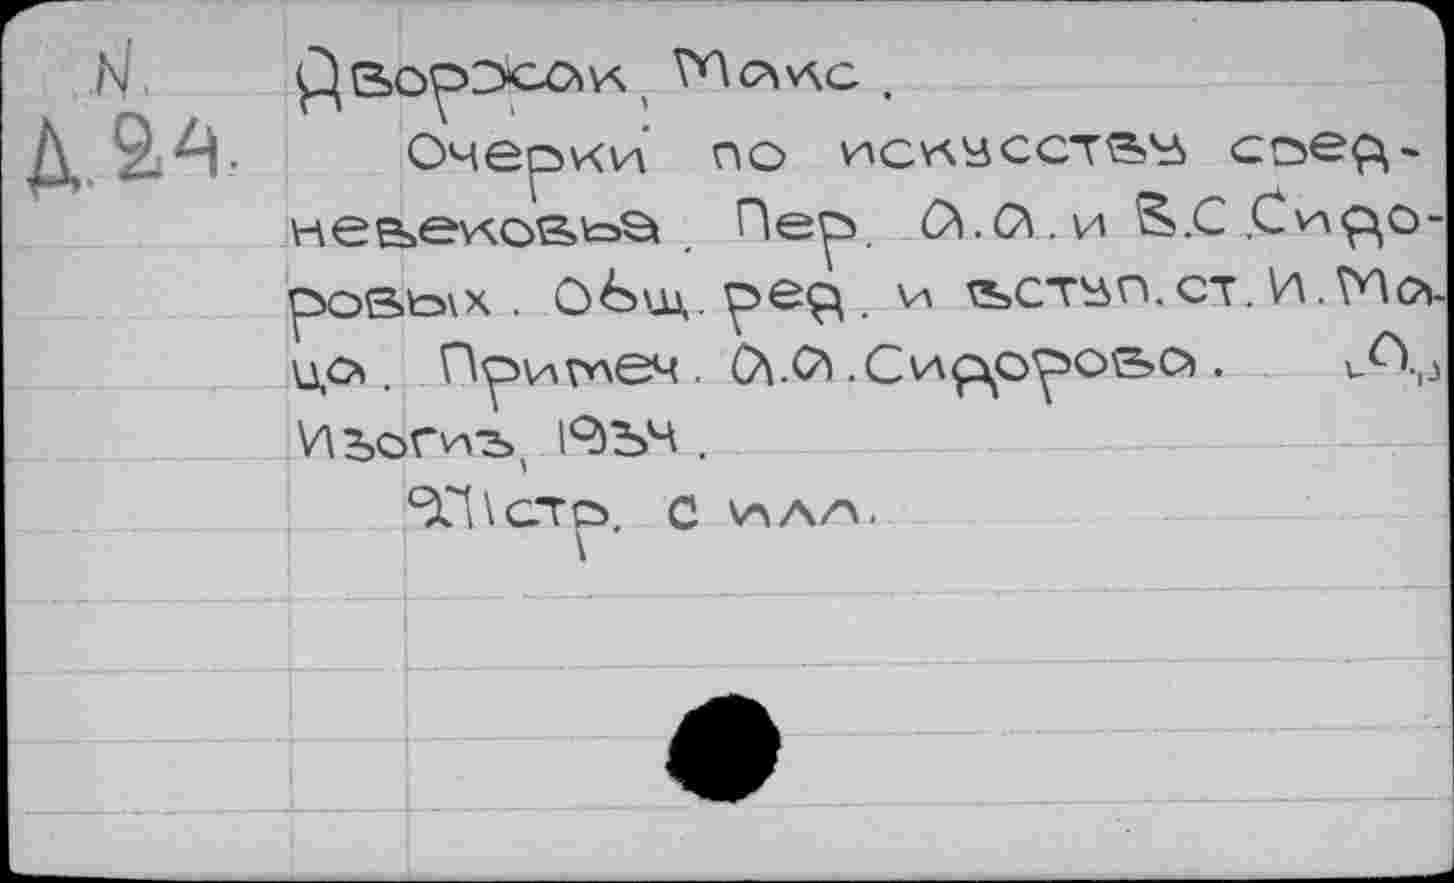 N.
Д.24.
Дворжак, Макс.
Очерки по искусству сред-
невековья. Пер. А.А. и В.С. Сидо-
ровых. Общ. ред. и вступ. ст. И. Ма-
ца. Примеч. А.А. Сидорова. [Л.]
Изогиз, 1934.
271 стр. с илл.